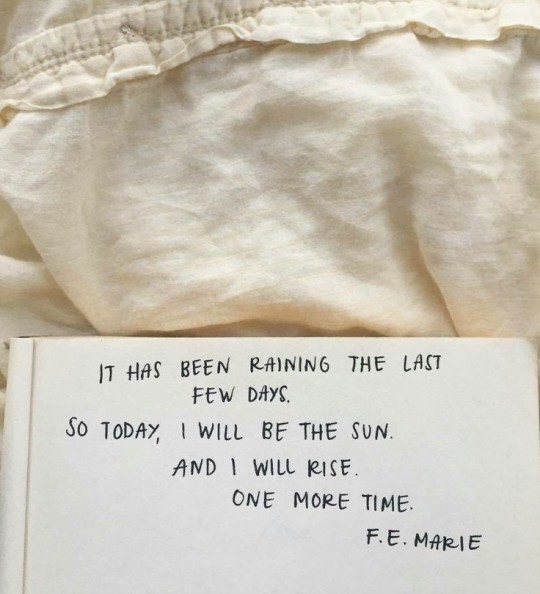 IT HAS BEEN RAINING THE LAST
FEW DAYS.
SO TODAY, I WILL BE THE SUN.
AND I WILL RISE.
ONE MORE TIME.
F.E. MARIE